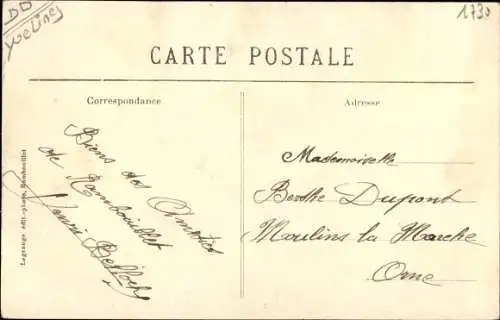 DD
Yvelines
1730
CARTE POSTALE
Correspondance
Adresse
Lagrange édit.-photo, Rambouillet
Biens des Amitiés
de Rambouillet
Mademoiselle
Berthe Dupont
Moulins la Marche
Orne